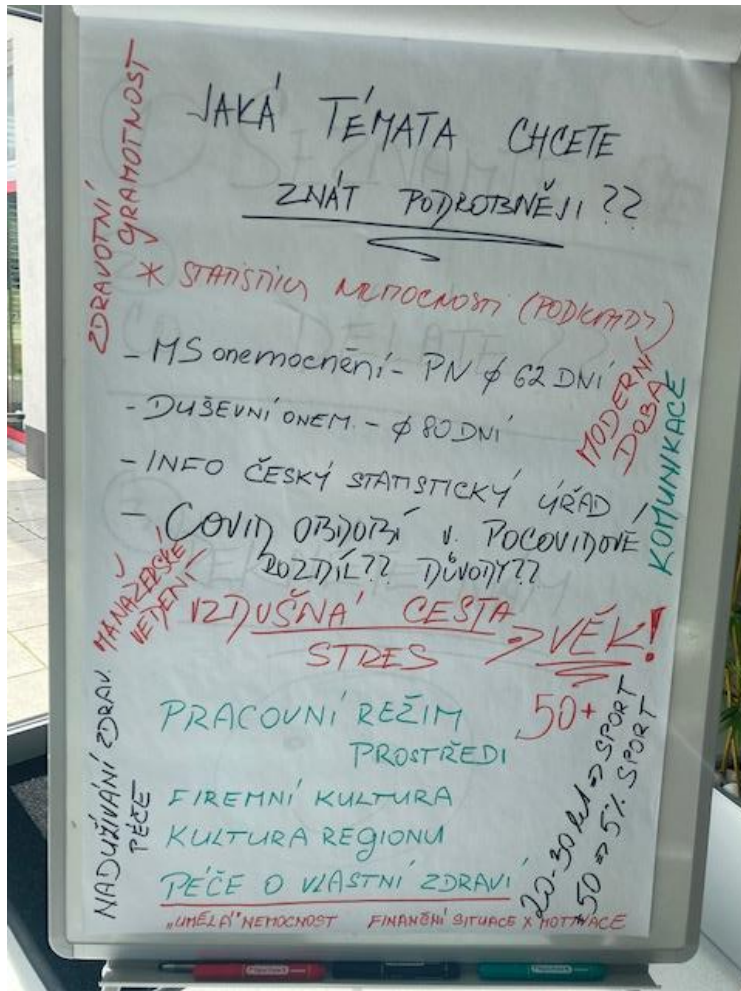 JAKÁ TÉMATA CHCETE
ZNÁT PODROBNĚJI ??
ZDRAVOTNÍ
GRAMOTNOST
* STATISTIKY NEMOCNOSTI (PODKLADY)
- MS onemocnění - PN ϕ 62 DNÍ
- DUŠEVNÍ ONEM. - ϕ 80 DNÍ
MODERNÍ
DOBA
- INFO ČESKÝ STATISTICKÝ ÚŘAD
KOMUNIKACE
- COVID OBDOBÍ v. POCOVIDOVÉ
ROZDÍL?? DŮVODY??
MANAŽERSKÉ
VEDENÍ
VZDUŠNÁ CESTA
STRES => VĚK!
50+
PRACOVNÍ REŽIM
PROSTŘEDI
FIREMNÍ KULTURA
KULTURA REGIONU
PÉČE O VLASTNÍ ZDRAVÍ
NADUŽÍVÁNÍ ZDRAV.
PÉČE
20-30 let => SPORT
50 => 5% SPORT
"UMĚLÁ" NEMOCNOST FINANČNÍ SITUACE X MOTIVACE